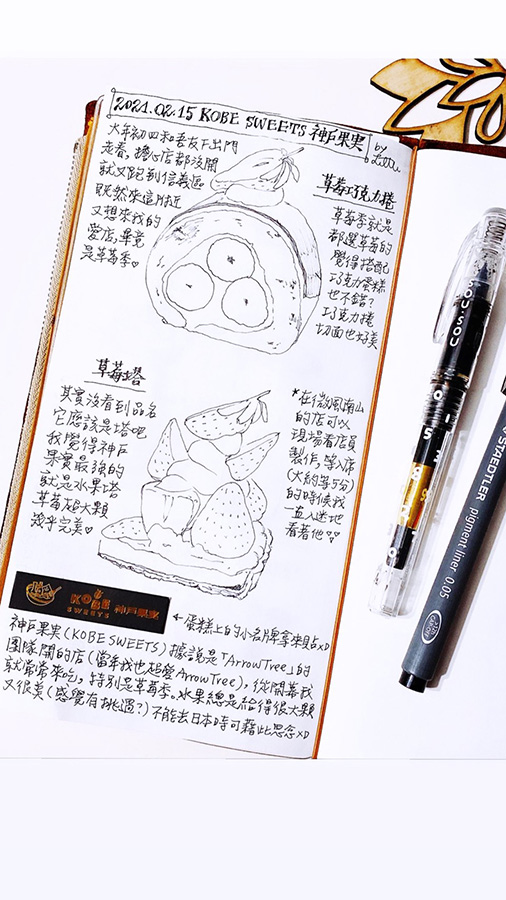 2021.02.15 KOBE SWEETS 神戶果実
by
大年初四和吾友下出門
走春，擔心店都沒開
就又跑到信義區
既然來這附近
又想來我的
愛店，畢竟
是草莓季♡
草莓巧克力捲
草莓季就是
都選草莓的
覺得搭配
巧克力蛋糕
也不錯？
巧克力捲
切面也好美
草莓塔
其實沒看到品名
它應該是塔吧
我覺得神戶
果實最強的
就是水果塔
草莓超大顆
幾乎完美♡
*在微風南山
的店可以
現場看店員
製作，等入席
(大約等5分)
的時候我
一直入迷地
看著他
KOBE
SWEETS 神戸果実
←蛋糕上的小名牌拿來貼xD
神戶果実(KOBE SWEETS)據說是「ArrowTree」的
團隊開的店(當年我也超愛ArrowTree)，從開幕我
就常常來吃，特別是草莓季。水果總是給得很大顆
又很美(感覺有挑過？)不能去日本時可藉此思念xD
SOU·SOU
STAEDTLER
pigment liner 0.05